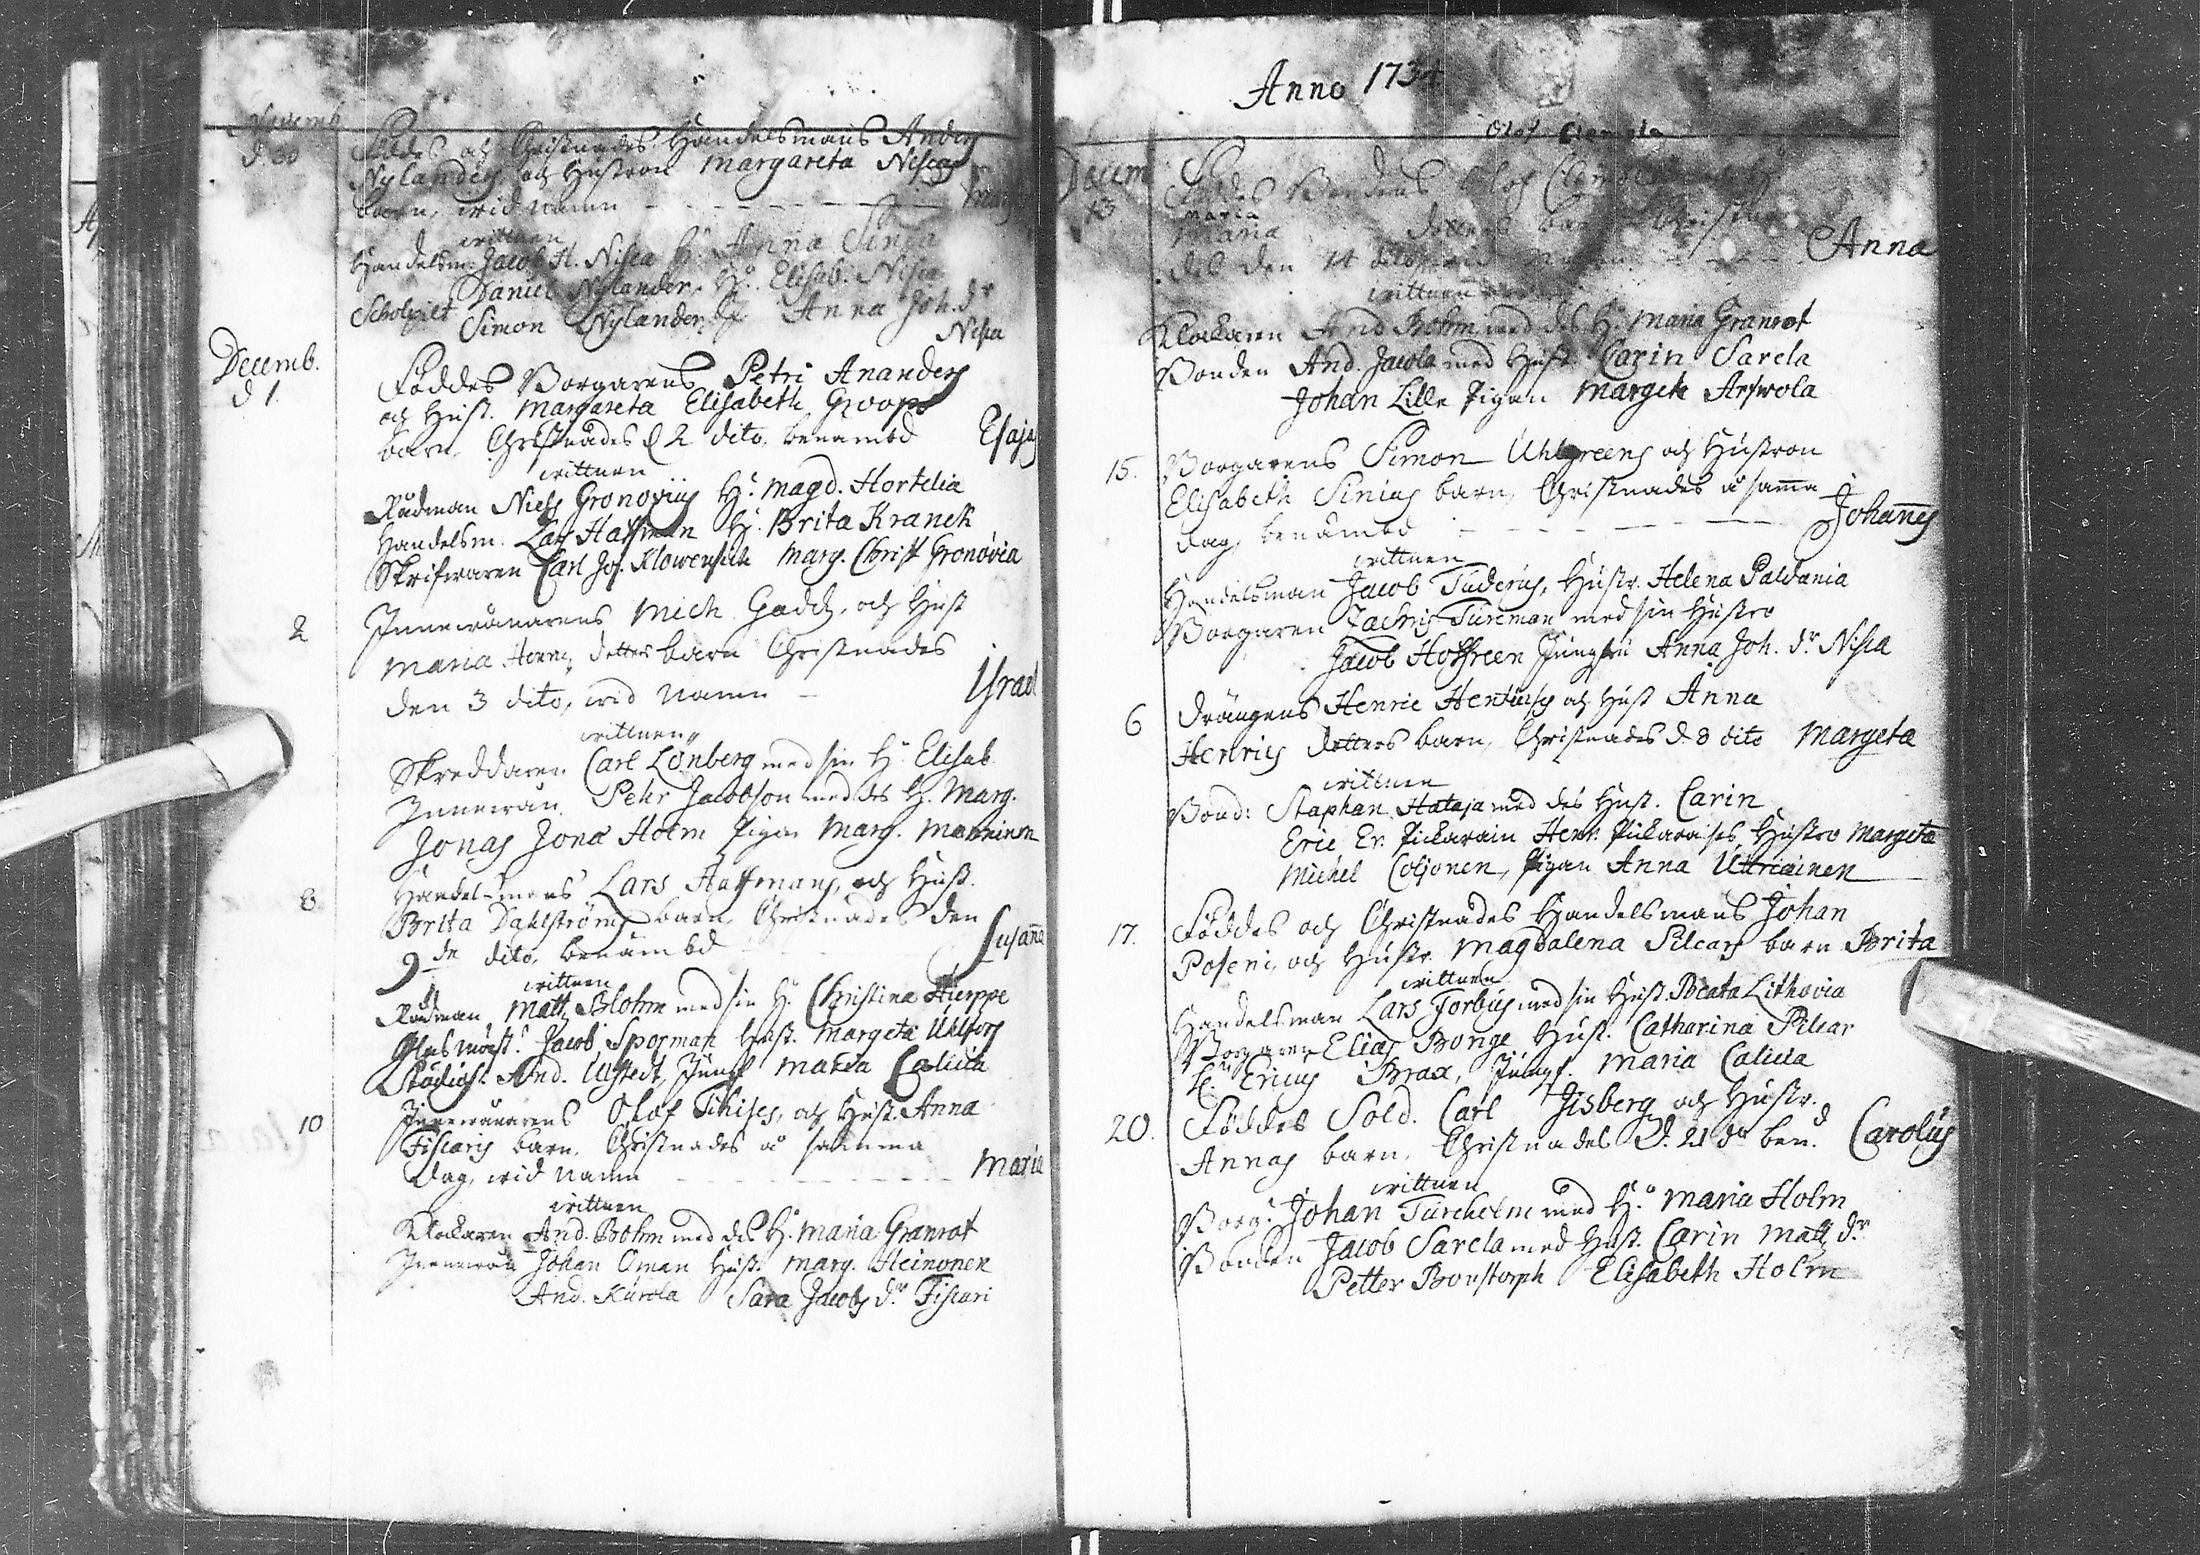 Novemb.
d 30
Föddes och Christnades Handelsmans Anders
Nylanders och Hustron Margareta Nisca
barn, wid namn
wittnen
Handelsm. Jacob H. Nisca H. Anna
Daniel Nylander H. Elisab. Nisca
Simon Nylander Anna Joh. dr
Nisca
Decemb.
d 1.
Föddes Borgarens Petri Ananders
och Hust. Margareta Elisabeth
barn, Christnades d 2 dito, benämbd Esajas
wittnen
Rådman Niels Gronovius H. Magd. Hortelia
Handelsm. Lars Haffman H. Brita Kranck
Skrifwaren Carl Joh. Klowensich Marg. Christ Gronovia
2
Innewånarens Mich. Gadds, och Hust
Maria dettes barn Christnades
den 3 dito, wid namn Israel
wittnen
Skreddaren Carl Lönberg med sin H. Elisab.
Innewån. Pehr Jacobson med des H. Marg.
Jonas Jonæ Holm Pigan Marg. Manninen
8
Handelsmans Lars Haffmans, och Hust.
Brita Dahlströms barn, Christnades den
9de dito, benämbd Susanna
wittnen
Rådman Matts Blohm med sin H. Christina Hierppe
Glasmäst. Jacob Sporman Hust. Margeta Uhlfors
And. Ulstedt, Jungf Maria Calicia
10
Innewånarens Olof Tihises, och Hust. Anna
Fiscaris barn, Christnades å samma
dag, wid namn Maria
wittnen
Klockaren And. Bohm med des H. Maria Granrot
Innewån Johan Öman Hust. Marg. Heinonen
And. Kurola Sara Jacobs dr Fiscari
Anno 1734
Olof Clemola
Decem
13
Föddes Bondens Olof
Maria
Maria dettes barn Christna-
des den 14 dito, wid namn Anna
wittnen
Klockaren And Bohm med des H. Maria Granrot
Bonden And. Jacola med Hust. Carin Sarela
Johan Lille Pigan Marget Arfwola
15.
Borgarens Simon Uhlgreens och Hustron
Elisabeth Sinius barn, Christnades å samma
dag, benämbd Johannes
wittnen
Handelsman Jacob Tuderus, Hustr. Helena Paldania
Borgaren Zachris Tureman med sin Hustro
Jacob Hoffreen Jungfru Anna Joh. dr Nisca
6
Drängens Henric Hentuses och Hust Anna
Henrics dettes barn, Christnades d. 8 dito Margeta
wittnen
Bond: Staphan Hataja med des Hust. Carin
Eric Er. Pickarain Henr. Pickaraises Hustro Margeta
Michel Coljonen, Pigan Anna Uttriainen
17.
Föddes och Christnades Handelsmans Johan
Poseni, och Hustr. Magdalena Pilcars barn Brita
wittnen
Handelsman Lars Forbus med sin Hust. Beata Lithovia
Borgaren Elias Bonge Hust. Catharina Pilcar
Ericus Brax, Jungf. Maria Calicia
20.
Föddes Sold. Carl Jisberg och Hustr.
Annas barn, Christnades d. 21 do ben.d Carolus
wittnen
Borg. Johan Turcholm med H. Maria Holm
Bonden Jacob Sarela med Hust. Carin Matts dr
Petter Bonstorph Elisabeth Holm